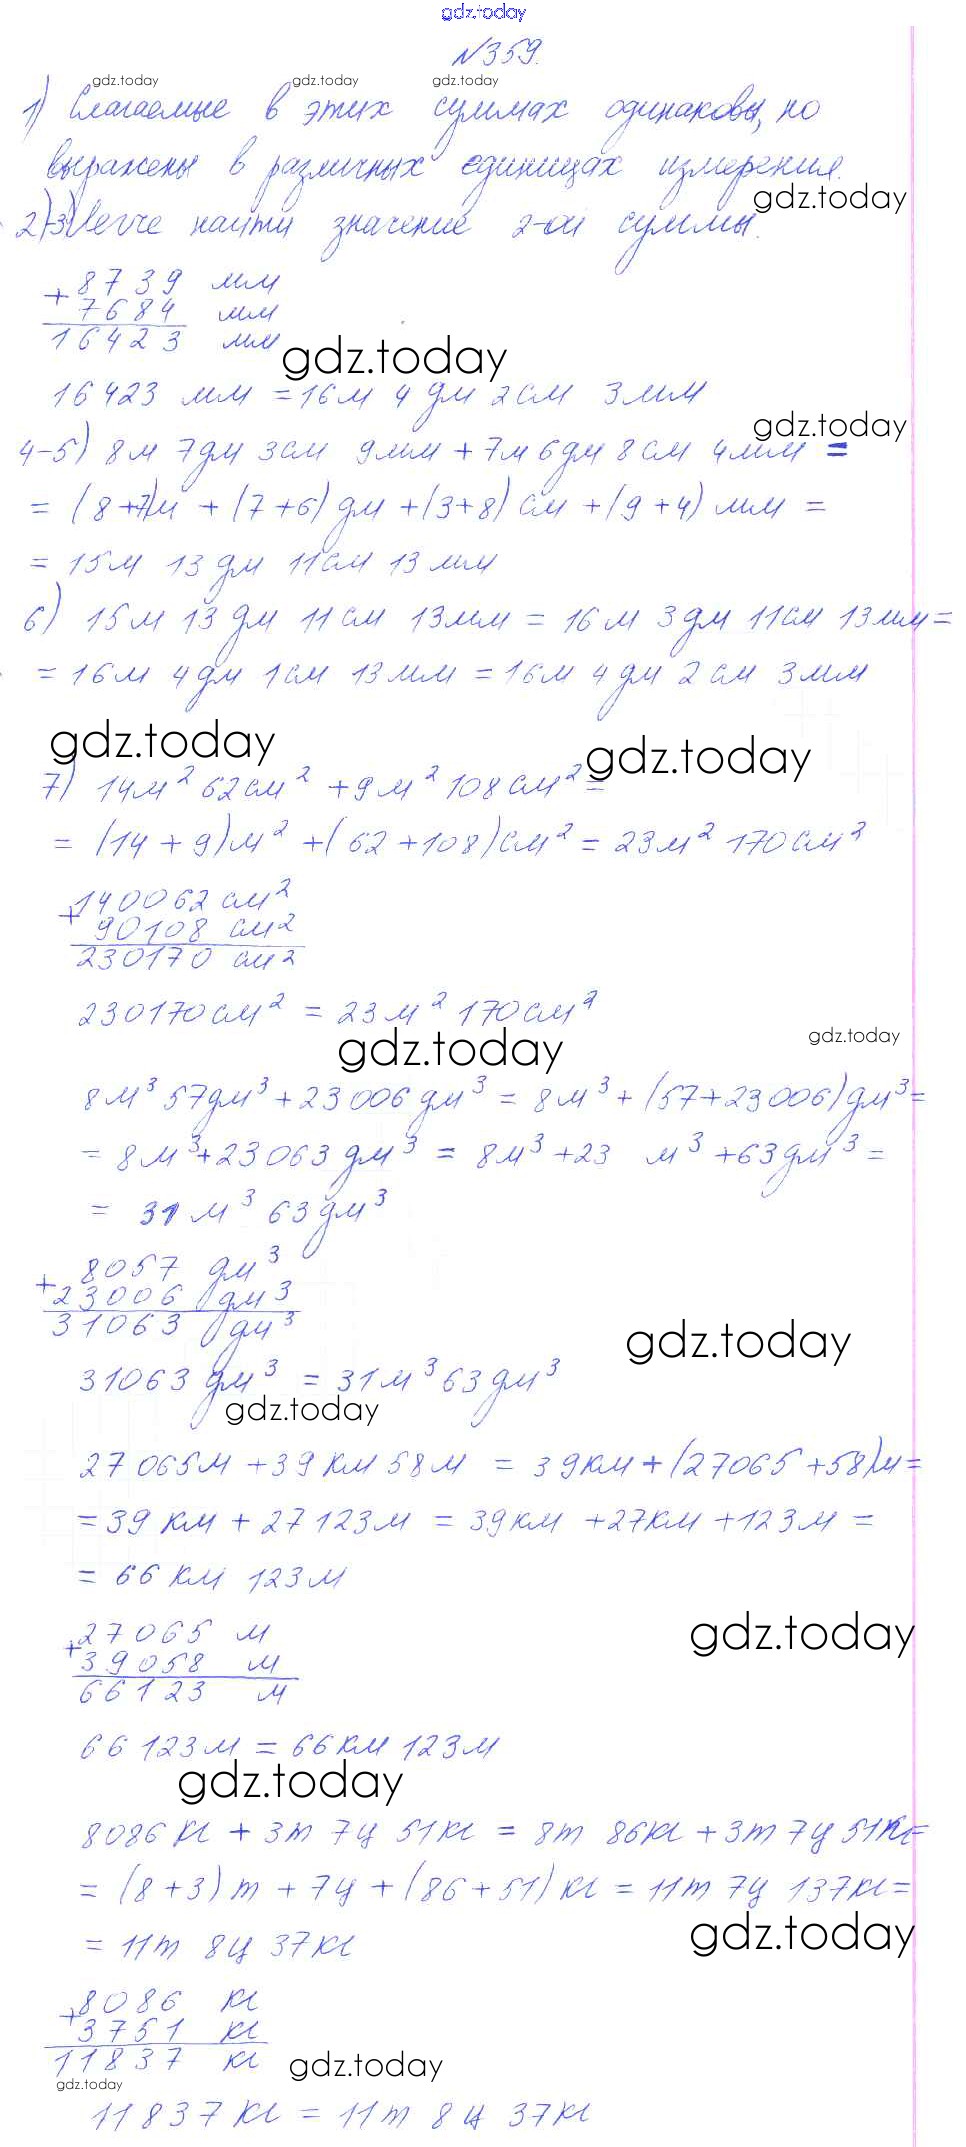 gdz.today
№359.
gdz.today gdz.today gdz.today
1) Слагаемые в этих суммах одинаковы, но
выражены в различных единицах измерения.
gdz.today
2)-3) Легче найти значение 2-ой суммы.
+ 8739 мм
7684 мм
16423 мм
gdz.today
16423 мм = 16м 4 дм 2см 3мм
gdz.today
4-5) 8м 7дм 3см 9мм + 7м 6дм 8см 4мм =
= (8+7)м + (7+6) дм + (3+8) см + (9+4) мм =
= 15м 13дм 11см 13мм
6) 15м 13 дм 11см 13мм = 16м 3дм 11см 13мм =
= 16м 4дм 1см 13мм = 16м 4дм 2см 3мм
gdz.today gdz.today
7) 14м² 62см² + 9м² 108см² =
= (14 + 9)м² + (62+108)см² = 23м² 170см²
+ 140062 см²
90108 см²
230170 см²
230170см² = 23м² 170см²
gdz.today gdz.today
8м³ 57дм³ + 23006 дм³ = 8м³ + (57+23006)дм³ =
= 8м³ + 23063 дм³ = 8м³ + 23 м³ + 63дм³ =
= 31 м³ 63дм³
+ 8057 дм³
23006 дм³
31063 дм³
gdz.today
31063 дм³ = 31м³ 63дм³
gdz.today
27065м + 39км 58м = 39км + (27065+58)м =
= 39 км + 27123м = 39км + 27км + 123м =
= 66км 123м
+ 27065 м
39058 м
66123 м
gdz.today
66123м = 66км 123м
gdz.today
8086кг + 3т 7ц 51кг = 8т 86кг + 3т 7ц 51кг =
= (8+3)т + 7ц + (86+51)кг = 11т 7ц 137кг =
gdz.today
= 11т 8ц 37кг
+ 8086 кг
3751 кг
11837 кг
gdz.today
gdz.today
11837кг = 11т 8ц 37кг